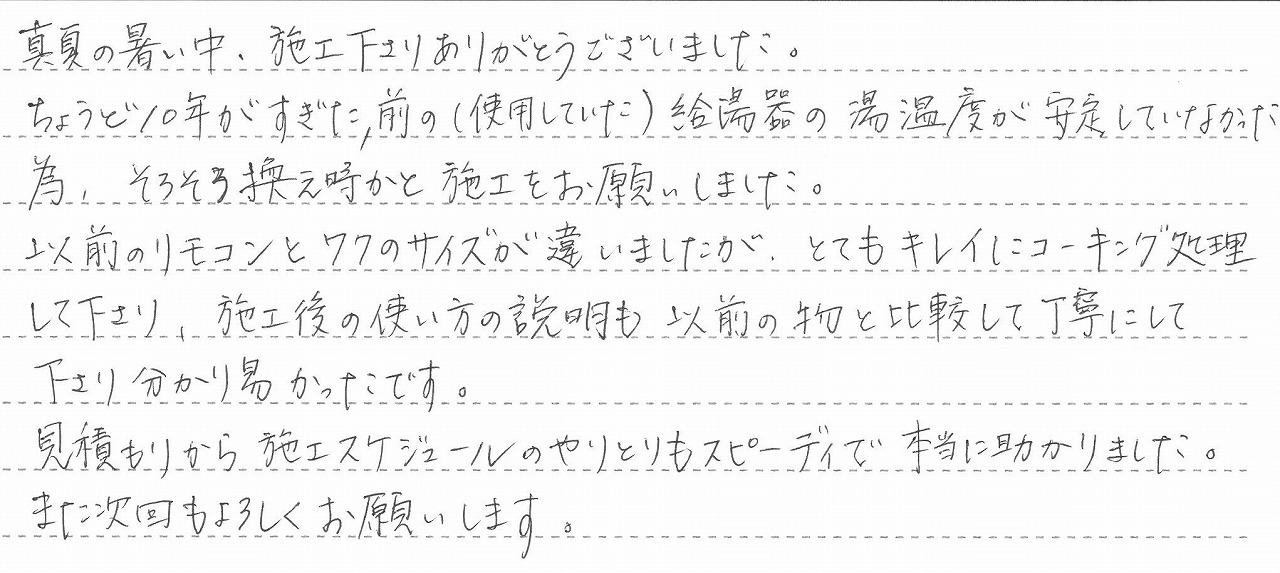 真夏の暑い中、施工下さりありがとうございました。
ちょうど10年がすぎた,前の(使用していた)給湯器の湯温度が安定していなかった
為、そろそろ換え時かと施工をお願いしました。
以前のリモコンとワクのサイズが違いましたが、とてもキレイにコーキング処理
して下さり、施工後の使い方の説明も以前の物と比較して丁寧にして
下さり分かり易かったです。
見積もりから施工スケジュールのやりとりもスピーディで本当に助かりました。
また次回もよろしくお願いします。